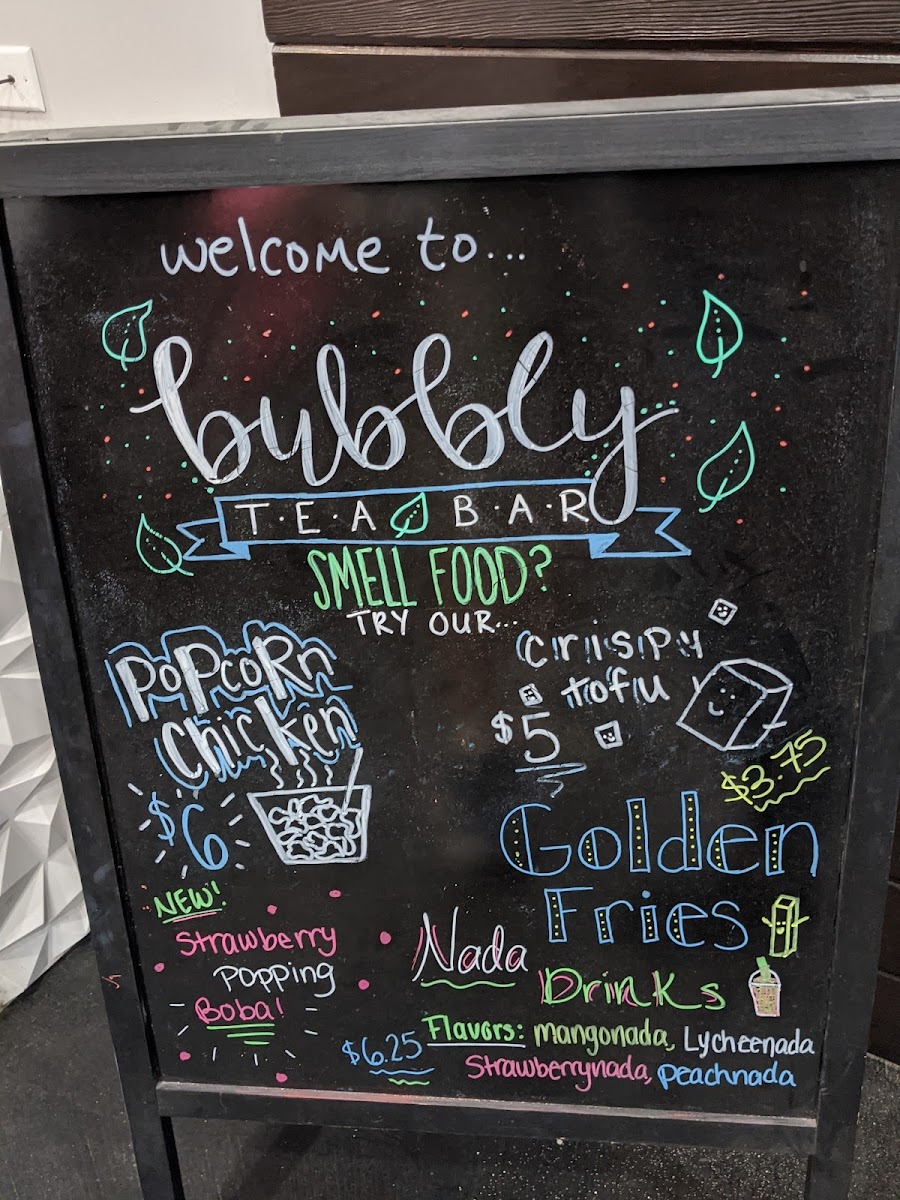 welcome to...
bubbly
T·E·A B·A·R
SMELL FOOD?
TRY OUR...
Popcorn
Chicken
$6
crispy
tofu
$5
$3.75
Golden
Fries
NEW!
Strawberry
Popping
Boba!
Nada
Drinks
$6.25
Flavors: mangonada, Lycheenada
Strawberrynada, peachnada